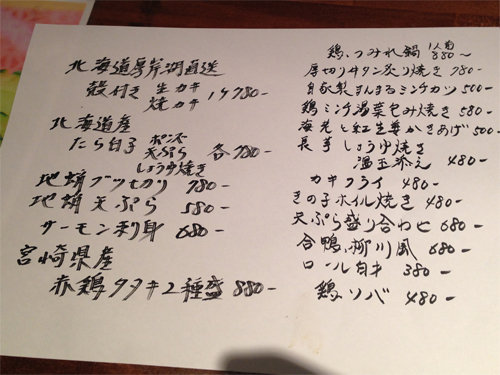 北海道厚岸湖直送
殻付き 生カキ
焼カキ 1ケ780-
北海道産
たら白子 ポンズ
天ぷら 各780-
しょうゆ焼き
地蛸ブツ切り 780-
地蛸天ぷら 580-
サーモン刺身 680-
宮崎県産
赤鶏タタキ2種盛 880-
鶏つみれ鍋 1人前
880〜
厚切り牛タン炙り焼き 980-
自家製まんまるミンチカツ 500-
鶏ミンチ湯葉包み焼き 580-
海老と紅生姜かきあげ 500-
長芋しょうゆ焼き
温玉添え 480-
カキフライ 480-
きの子ホイル焼き 480-
天ぷら盛り合わせ 680-
合鴨柳川風 680-
ロール白才 380-
鶏ソバ 480-